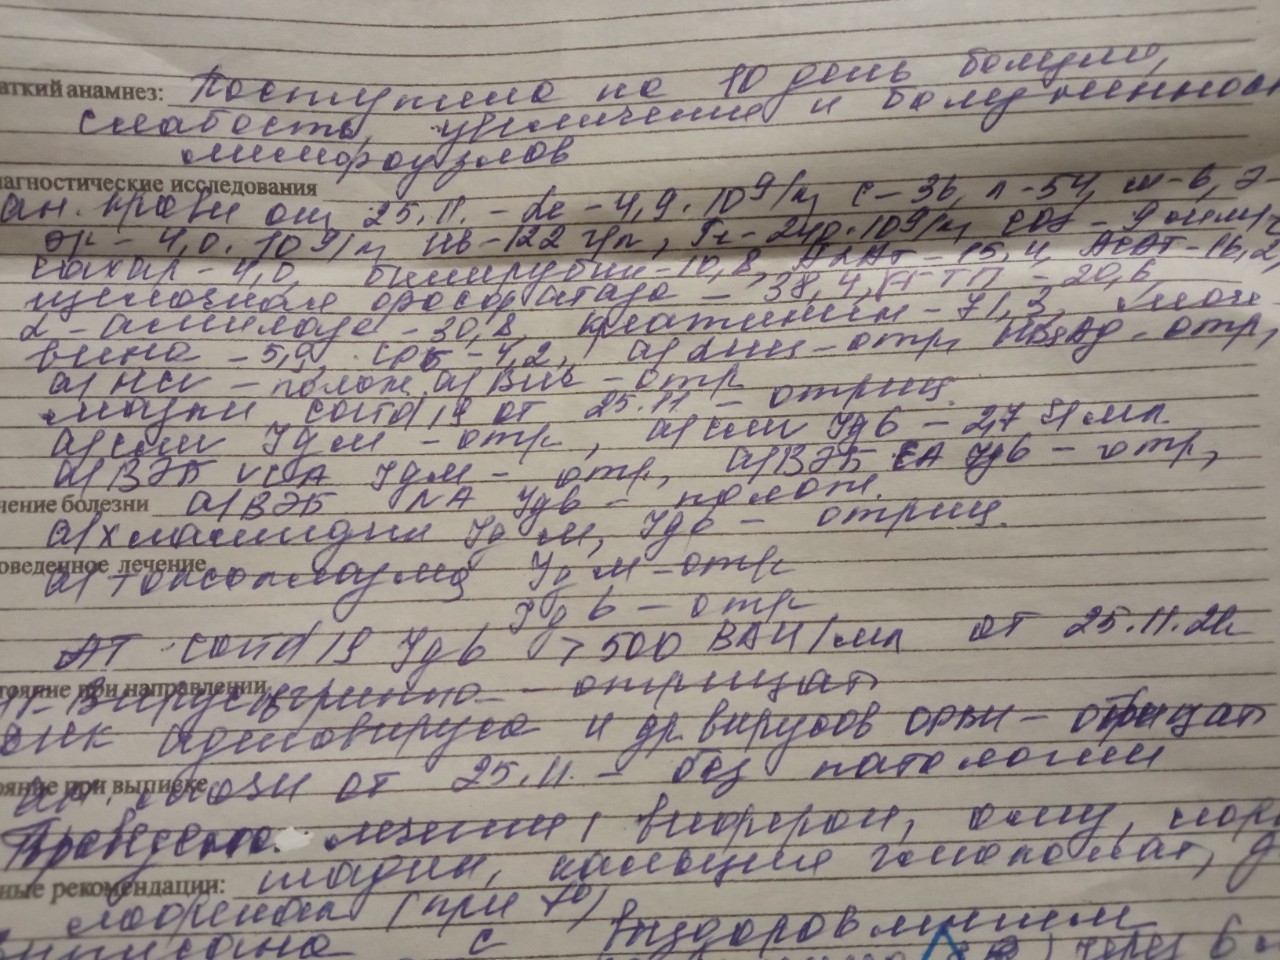 аткий анамнез: Поступила на 10 день болезни,
слабость, увеличение и болезненнос
лимфоузлов
иагностические исследования
ан. крови общ 25.11. - Le - 4,9·10⁹/л, с - 36, л - 54, м - 6, э -
эр - 4,0·10⁹/л, Hb - 122 г/л, Тр - 240·10⁹/л, СОЭ - 9 мм/ч
сахар - 4,0, билирубин - 10,8, АлАТ - 15,4, АсАТ - 16,2,
щелочная фосфатаза - 38,4, ГГТП - 20,6,
α - амилаза - 30,8, креатинин - 71,3, моче-
вина - 5,9, СРБ - 4,2, отр, HBsAg - отр,
а/HCV - полож, а/ВИЧ - отр
мазки covid 19 от 25.11 - отриц.
а/ Ig M - отр, а/ Ig G - 2,7 мл
а/ВЭБ VCA Ig M - отр, а/ВЭБ EA Ig G - отр,
чение болезни а/ВЭБ NA Ig G - полож.
а/хламидии Ig M, Ig G - отриц.
оведенное лечение
а/токсоплазма Ig M - отр
Ig G - отр
АТ covid 19 Ig G > 500 BAU/мл от 25.11.21
тояние при направлении
вирус гриппа - отрицат
аденовируса и др. вирусов ОРВИ - отрицат
ояние при выписке
ан. мочи от 25.11. - без патологии
Проведено лечение: виферон,
ные рекомендации: тадин, кальция глюконат,
(при t°)
выписана с выздоровлением
через 6